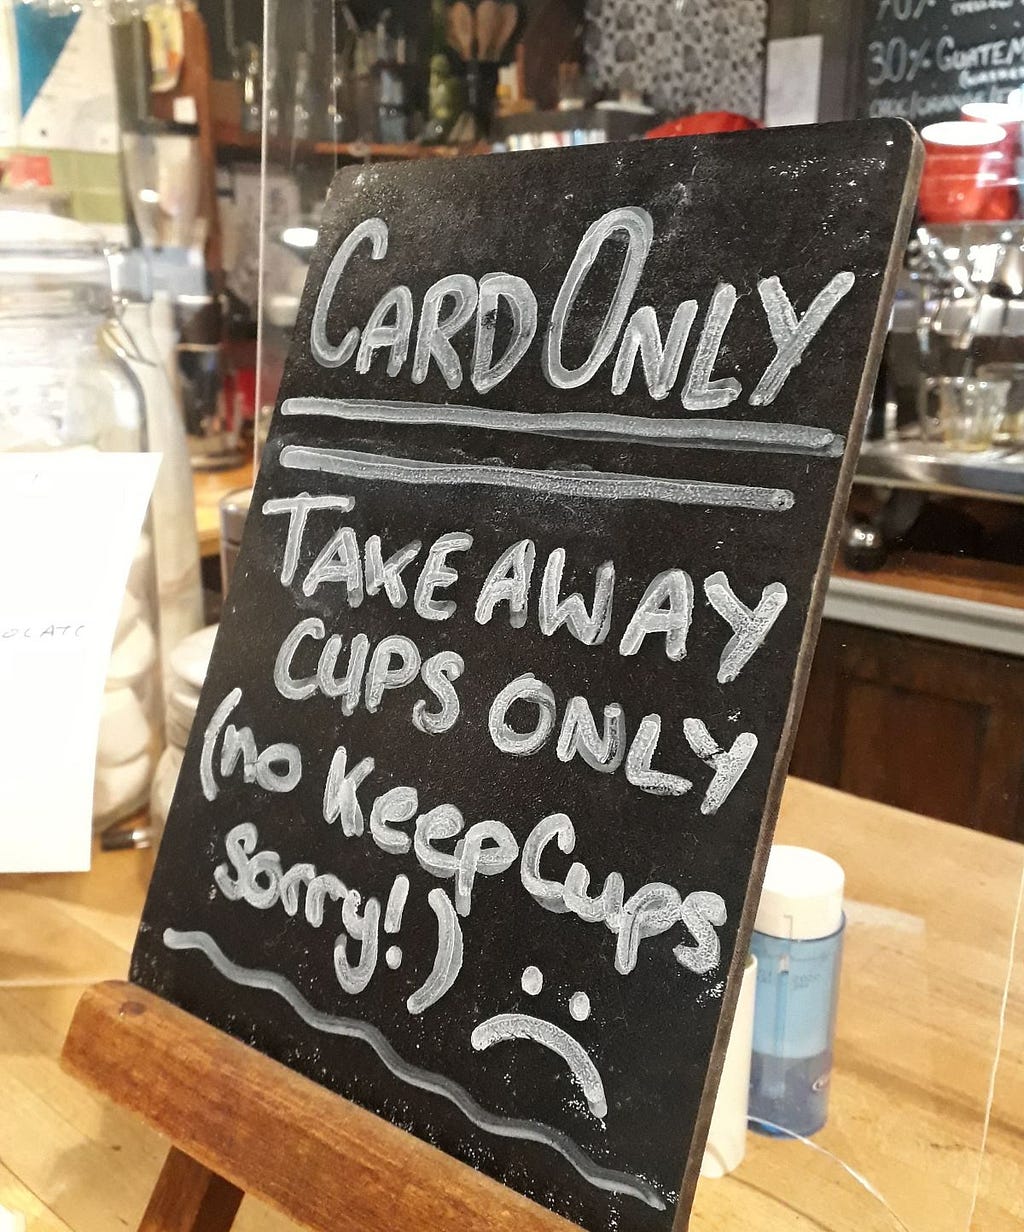 CARD ONLY
TAKE AWAY
CUPS ONLY
(no KeepCups
sorry!)
70%
30% GUATEM